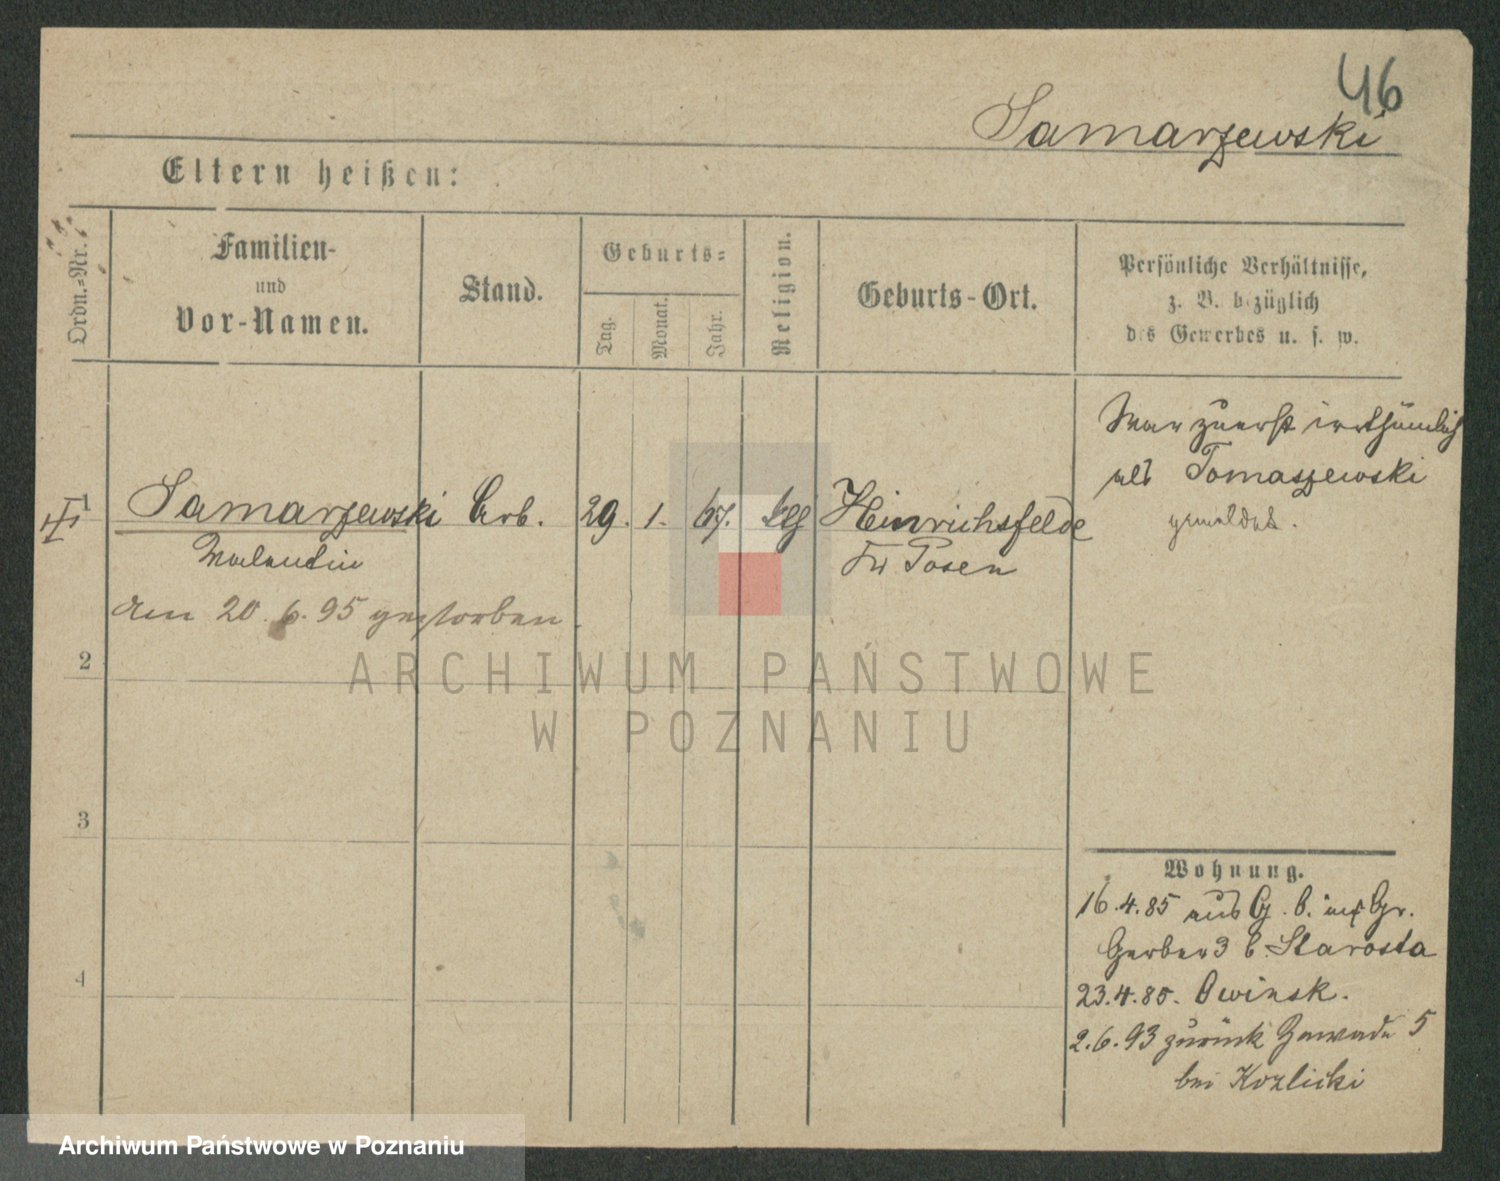 46
Samarzewski
Eltern heißen:
Ordn.-Nr.
Familien-
und
Vor-Namen.
Stand.
Geburts-
Tag.
Monat.
Jahr.
Religion.
Geburts-Ort.
Persönliche Verhältnisse,
z. B. bezüglich
des Gewerbes u. s. w.
War zuerst irrthümlich
als Tomaszewski
gemeldet.
1
Samarzewski Arb. 29. 1. 67. Heinrichsfelde
Valentin
Kr Posen
am 20.6.95 gestorben.
2
3
4
ARCHIWUM PAŃSTWOWE
W POZNANIU
Wohnung.
16.4.85 aus G. b. Gr.
Gerber 3 b. Starosta
23.4.85. Owinsk.
2.6.93 zurück Zawade 5
bei Kozlicki
Archiwum Państwowe w Poznaniu